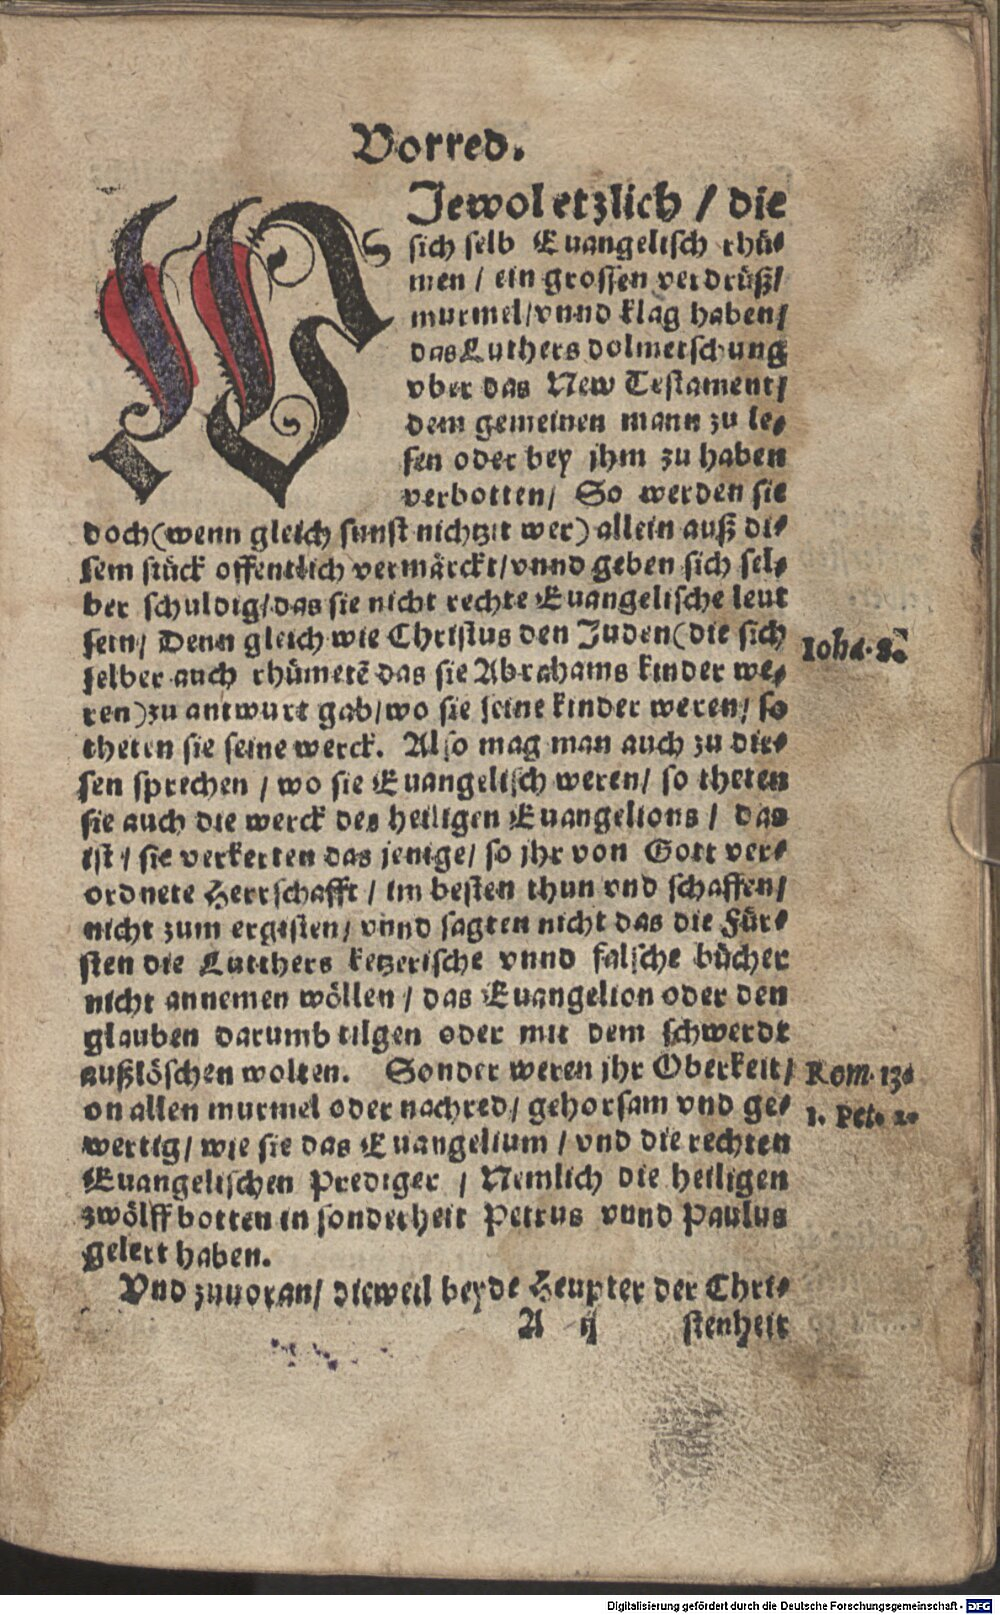 Vorred.
WJewol etzlich / die
sich selb Euangelisch rhü⸗
men / ein grossen verdrüß/
murmel/vnnd klag haben/
das Luthers dolmetschung
vber das New Testament/
dem gemeinen mann zu le⸗
sen oder bey jhm zu haben
verbotten/ So werden sie
doch(wenn gleich sunst nichtzit wer) allein auß di⸗
sem stück offentlich vermärckt/vnnd geben sich sel⸗
ber schuldig/das sie nicht rechte Euangelische leut
sein/ Denn gleich wie Christus den Juden(die sich
selber auch rhümetẽ das sie Abrahams kinder we⸗
ren)zu antwurt gab/wo sie seine kinder weren/ so
theten sie seine werck. Also mag man auch zu die⸗
sen sprechen / wo sie Euangelisch weren/ so theten
sie auch die werck des heiligen Euangelions / das
ist / sie verkerten das jenige/ so jhr von Gott ver⸗
ordnete Herrschafft / im besten thun vnd schaffen/
nicht zum ergisten/ vnnd sagten nicht das die Für⸗
sten die Lutthers ketzerische vnnd falsche bücher
nicht annemen wöllen / das Euangelion oder den
glauben darumb tilgen oder mit dem schwerdt
außlöschen wolten. Sonder weren jhr Oberkeit/
on allen murmel oder nachred/ gehorsam vnd ge⸗
wertig/ wie sie das Euangelium / vnd die rechten
Euangelischen Prediger / Nemlich die heiligen
zwölff botten in sonderheit Petrus vnnd Paulus
gelert haben.
Vnd zuuoran/ dieweil beyde Heupter der Chri⸗
A ij stenheit
Joha. 8.
Rom. 13.
1. Pet. 2.
Digitalisierung gefördert durch die Deutsche Forschungsgemeinschaft - DFG